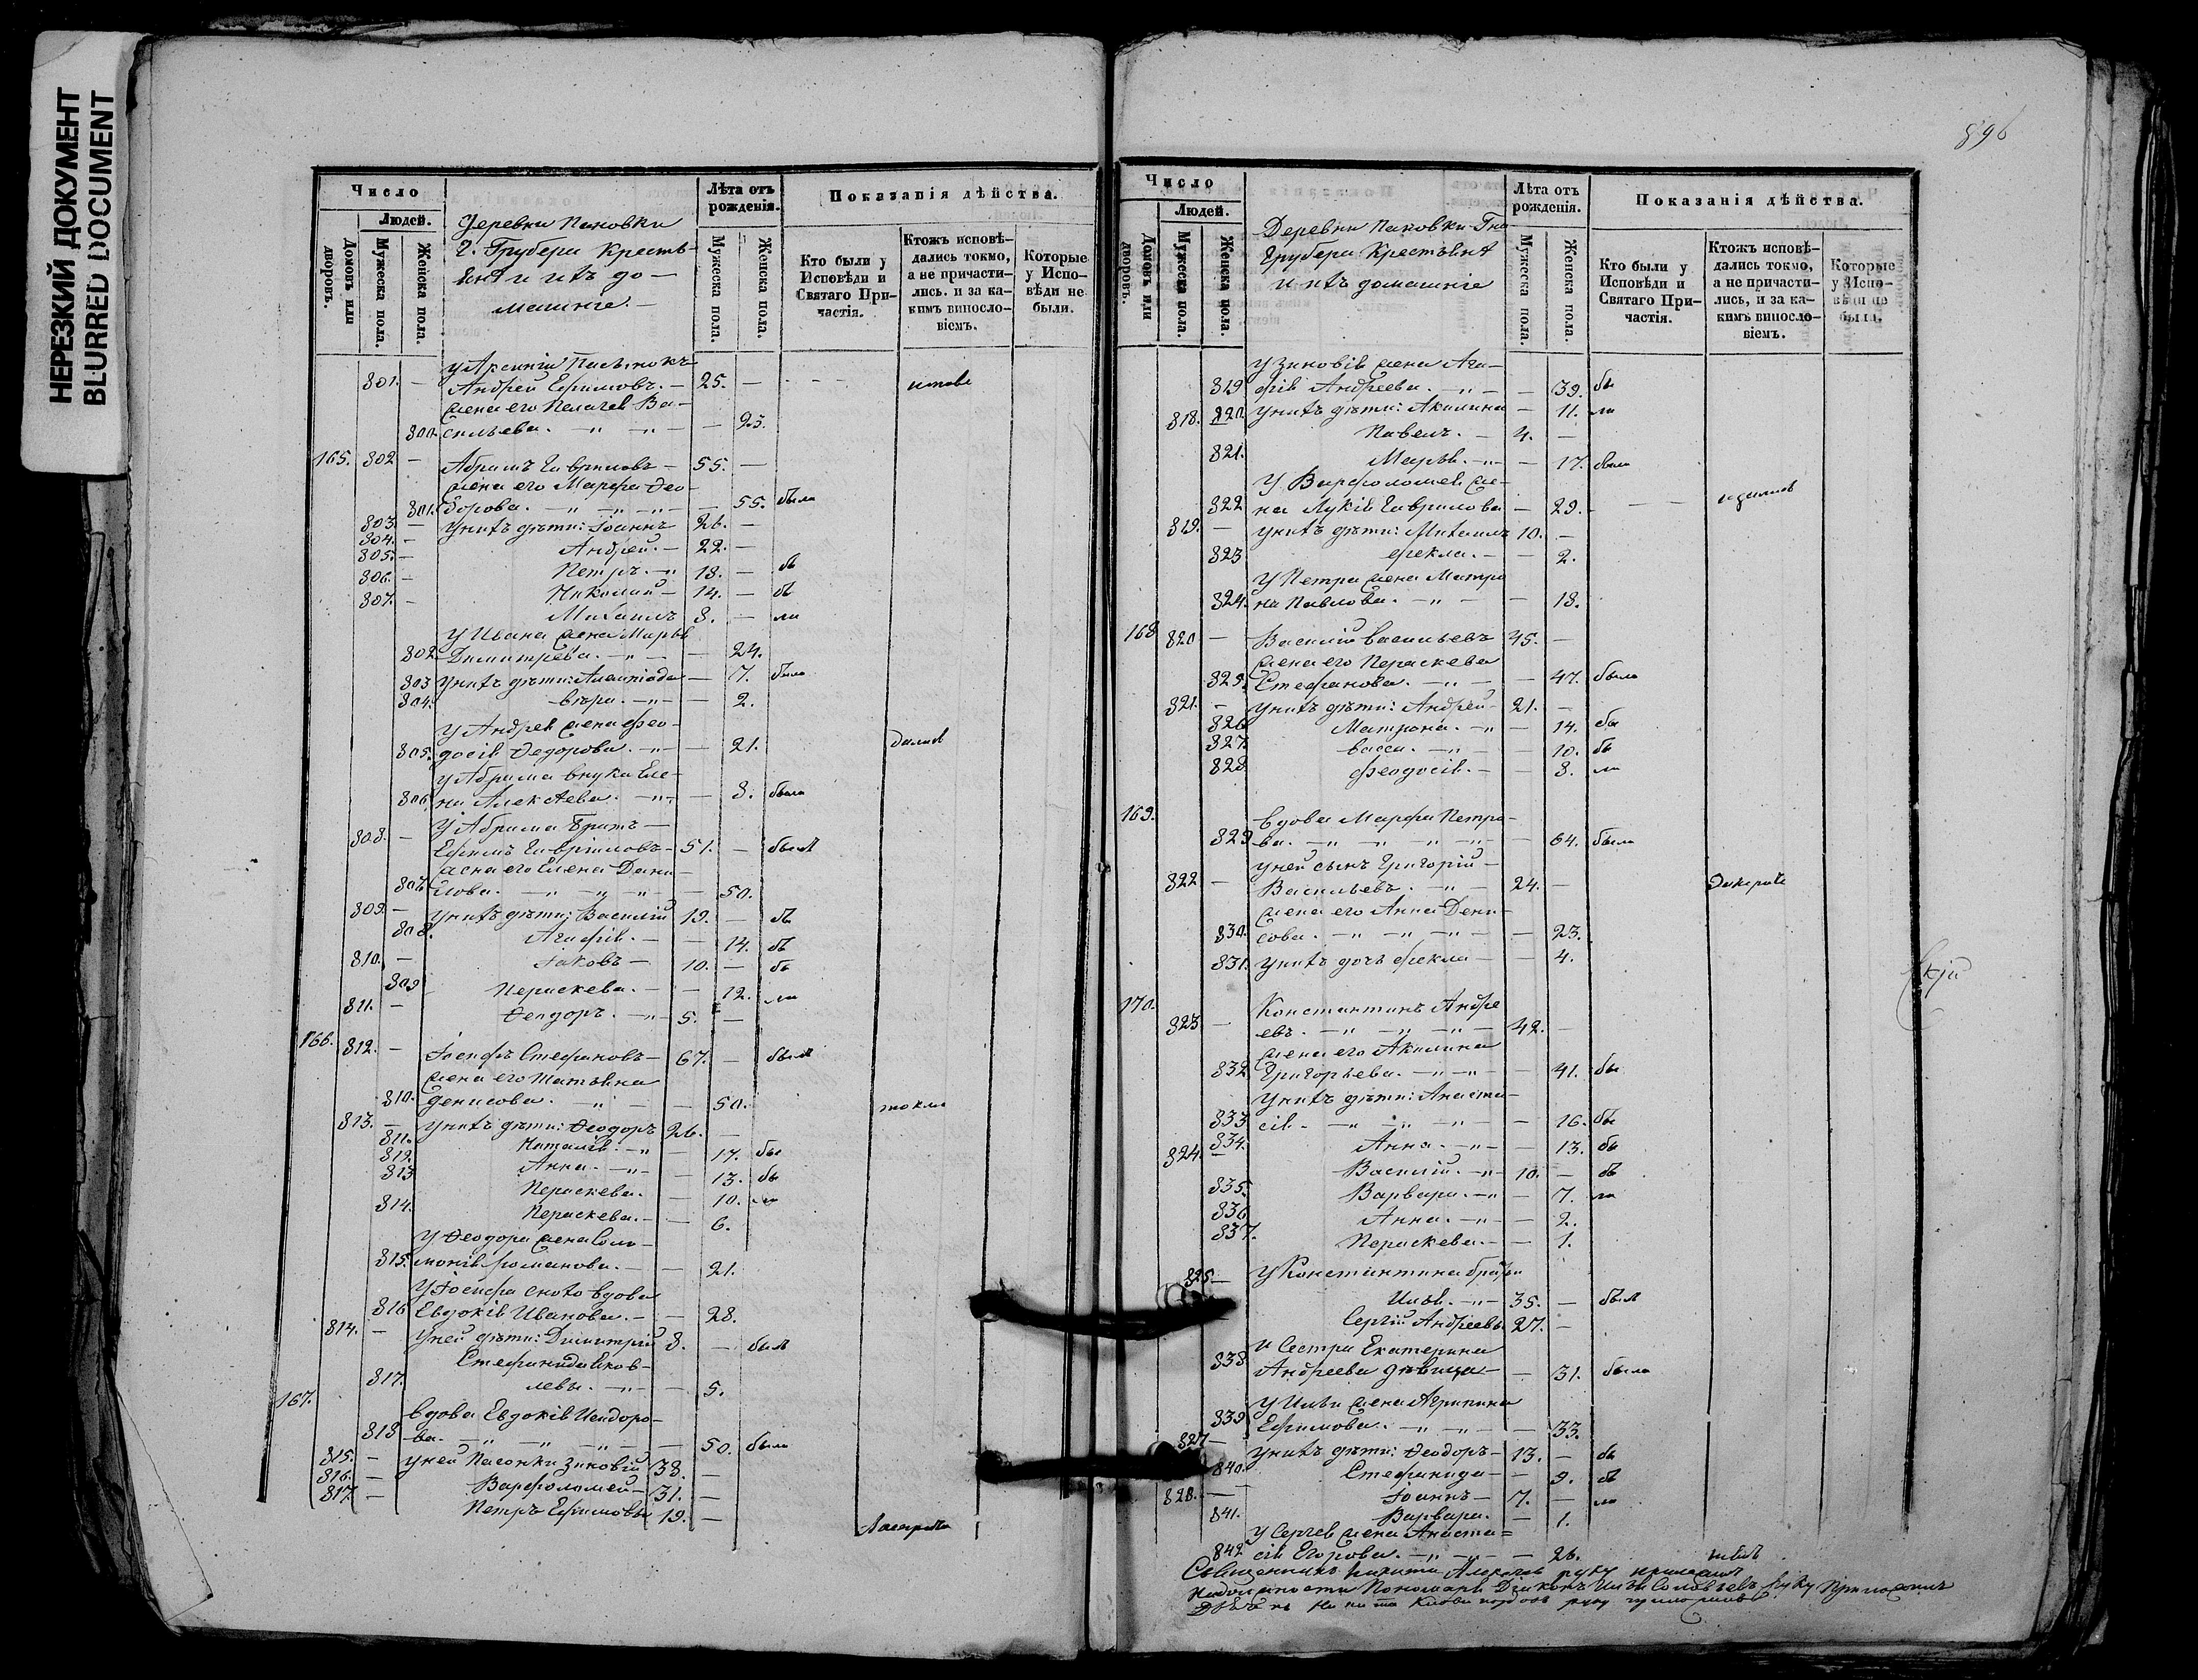 НЕРЕЗКИЙ ДОКУМЕНТ
BLURRED DOCUMENT
Число
Людей.
Домовъ или дворовъ.
Мужеска пола.
Женска пола.
Деревни Пановки
Г. Грубера Кресть-
яне и ихъ до-
машніе. —
Лѣта отъ рожденія.
Мужеска пола.
Женска пола.
Показанія дѣйства.
Кто были у Исповѣди и Святаго При-частія.
Ктожъ исповѣ-дались токмо, а не причасти-лись. и за ка-кимъ винослo-віемъ.
Которые у Испо-вѣди не были.
801. — Андрей Ефимовъ. — 25. —
жена его Пелагея Ва-
800. сильева. — 23.
165. 802 — Абрамъ Гавриловъ — 55. —
жена его Марфа Ѳео-
801. дорова. — 55. была
803. — у нихъ дѣти: Іоаннъ 26. —
804. — Андрей. — 22. —
805. — Петръ. — 18. — бы
806. — Николай — 14. — бы
807. — Михаилъ 8. — ли
у Ивана жена Марья
802 Димитрева. — 24.
803 у нихъ дѣти: Алимпіада — 7. была
804. Вѣра. — 2.
у Андрея жена Ѳео-
805. досія Ѳедорова. — 21.
у Абрама внука Еле-
806 на Алексѣева. — 8. была
808. — у Абрама братъ —
Ефимъ Гавриловъ — 51. — былъ
жена его Елена Дани-
807 лова. — 50.
809. — у нихъ дѣти: Василій 19. — бы
808. Агафія. — 14. бы
810. — Іаковъ — 10. — бы
809 Параскева. — 12. ли
811. — Ѳеодоръ. — 5. —
166. 812. — Іосифъ Стефановъ — 67. — былъ
жена его Татьяна
810. Денисова. — 50. токмо
813. — у нихъ дѣти: Ѳеодоръ 26. —
811. Наталія. — 17. бы
812. Анна. — 13. бы
813 Параскева. — 10. ли
814. Параскева. — 6.
у Ѳеодора жена Соло-
815. монія Романова. — 21.
у Іосифа сноха вдова
816 Евдокія Иванова. — 28.
814. — у ней дѣти: Димитрій 8. — былъ
Стефанида Яков-
817. левы. — 5.
167. вдова Евдокія Исидоро-
818 ва. — 50. была
815. — у ней пасынки Зиновій 38. —
816. — Варфоломей — 31. —
817. — Петръ Ефимовы 19. —
896
Число
Людей.
Домовъ или дворовъ.
Мужеска пола.
Женска пола.
Деревни Пановки Гна
Грубера Крестьяне
и ихъ домашніе
Лѣта отъ рожденія.
Мужеска пола.
Женска пола.
Показанія дѣйства.
Кто были у Исповѣди и Святаго При-частія.
Ктожъ исповѣ-дались токмо, а не причасти-лись, и за ка-кимъ винослo-віемъ.
Которые у Испо-вѣди не были.
у Зиновія жена Ага-
819 фія Андреева. — 39. бы
820. у нихъ дѣти: Акилина — 11. ли
818. Павелъ. — 4. —
821. Марья. — 17. была
У Варфоломея же-
822 на Лукія Гаврилова — 29.
819. — у нихъ дѣти: Михаилъ 10. —
823 Фекла. — 2.
у Петра жена Матро
824. на Павлова. — 18.
168 820 — Василій Васильевъ 45. —
жена его Параскева
825. Стефанова. — 47. была
821. — у нихъ дѣти: Андрей — 21. —
826 Матрона. — 14. бы
827. Васса. — 10. бы
828 Феодосія. — 8. ли
169. вдова Марфа Петро-
829 ва. — 64. была
у ней сынъ Григорій —
822 — Васильевъ. — 24. —
жена его Анна Дени-
830. сова. — 23.
831. у нихъ дочь Фекла — 4.
170. Константинъ Андре
823 — евъ. — 42. —
жена его Акилина
832 Григорьева. — 41. бы
у нихъ дѣти: Анаста-
833 сія — 16. бы
834. Анна. — 13. бы
824. — Василій. — 10. — бы
835. Варвара. — 7. ли
836 Анна. — 2.
837. Параскева. — 1.
825. — у Константина братья
Илья. — 35. — былъ
Сергій Андреевы 27. —
и Сестра Екатерина
838 Андреева дѣвица — 31. была
у Ильи жена Агрипина
839 Ефимова. — 33.
827 — у нихъ дѣти: Ѳеодоръ — 13. — бы
840. Стефанида — 9. бы
828. — Іоаннъ — 7. — ли
841. Варвара. — 1.
у Сергея жена Анаста=
842 сія Егорова. — 26.
Священникъ Никита руку приложилъ
Пономаря Діаконъ Илья Соловьевъ руку приложилъ